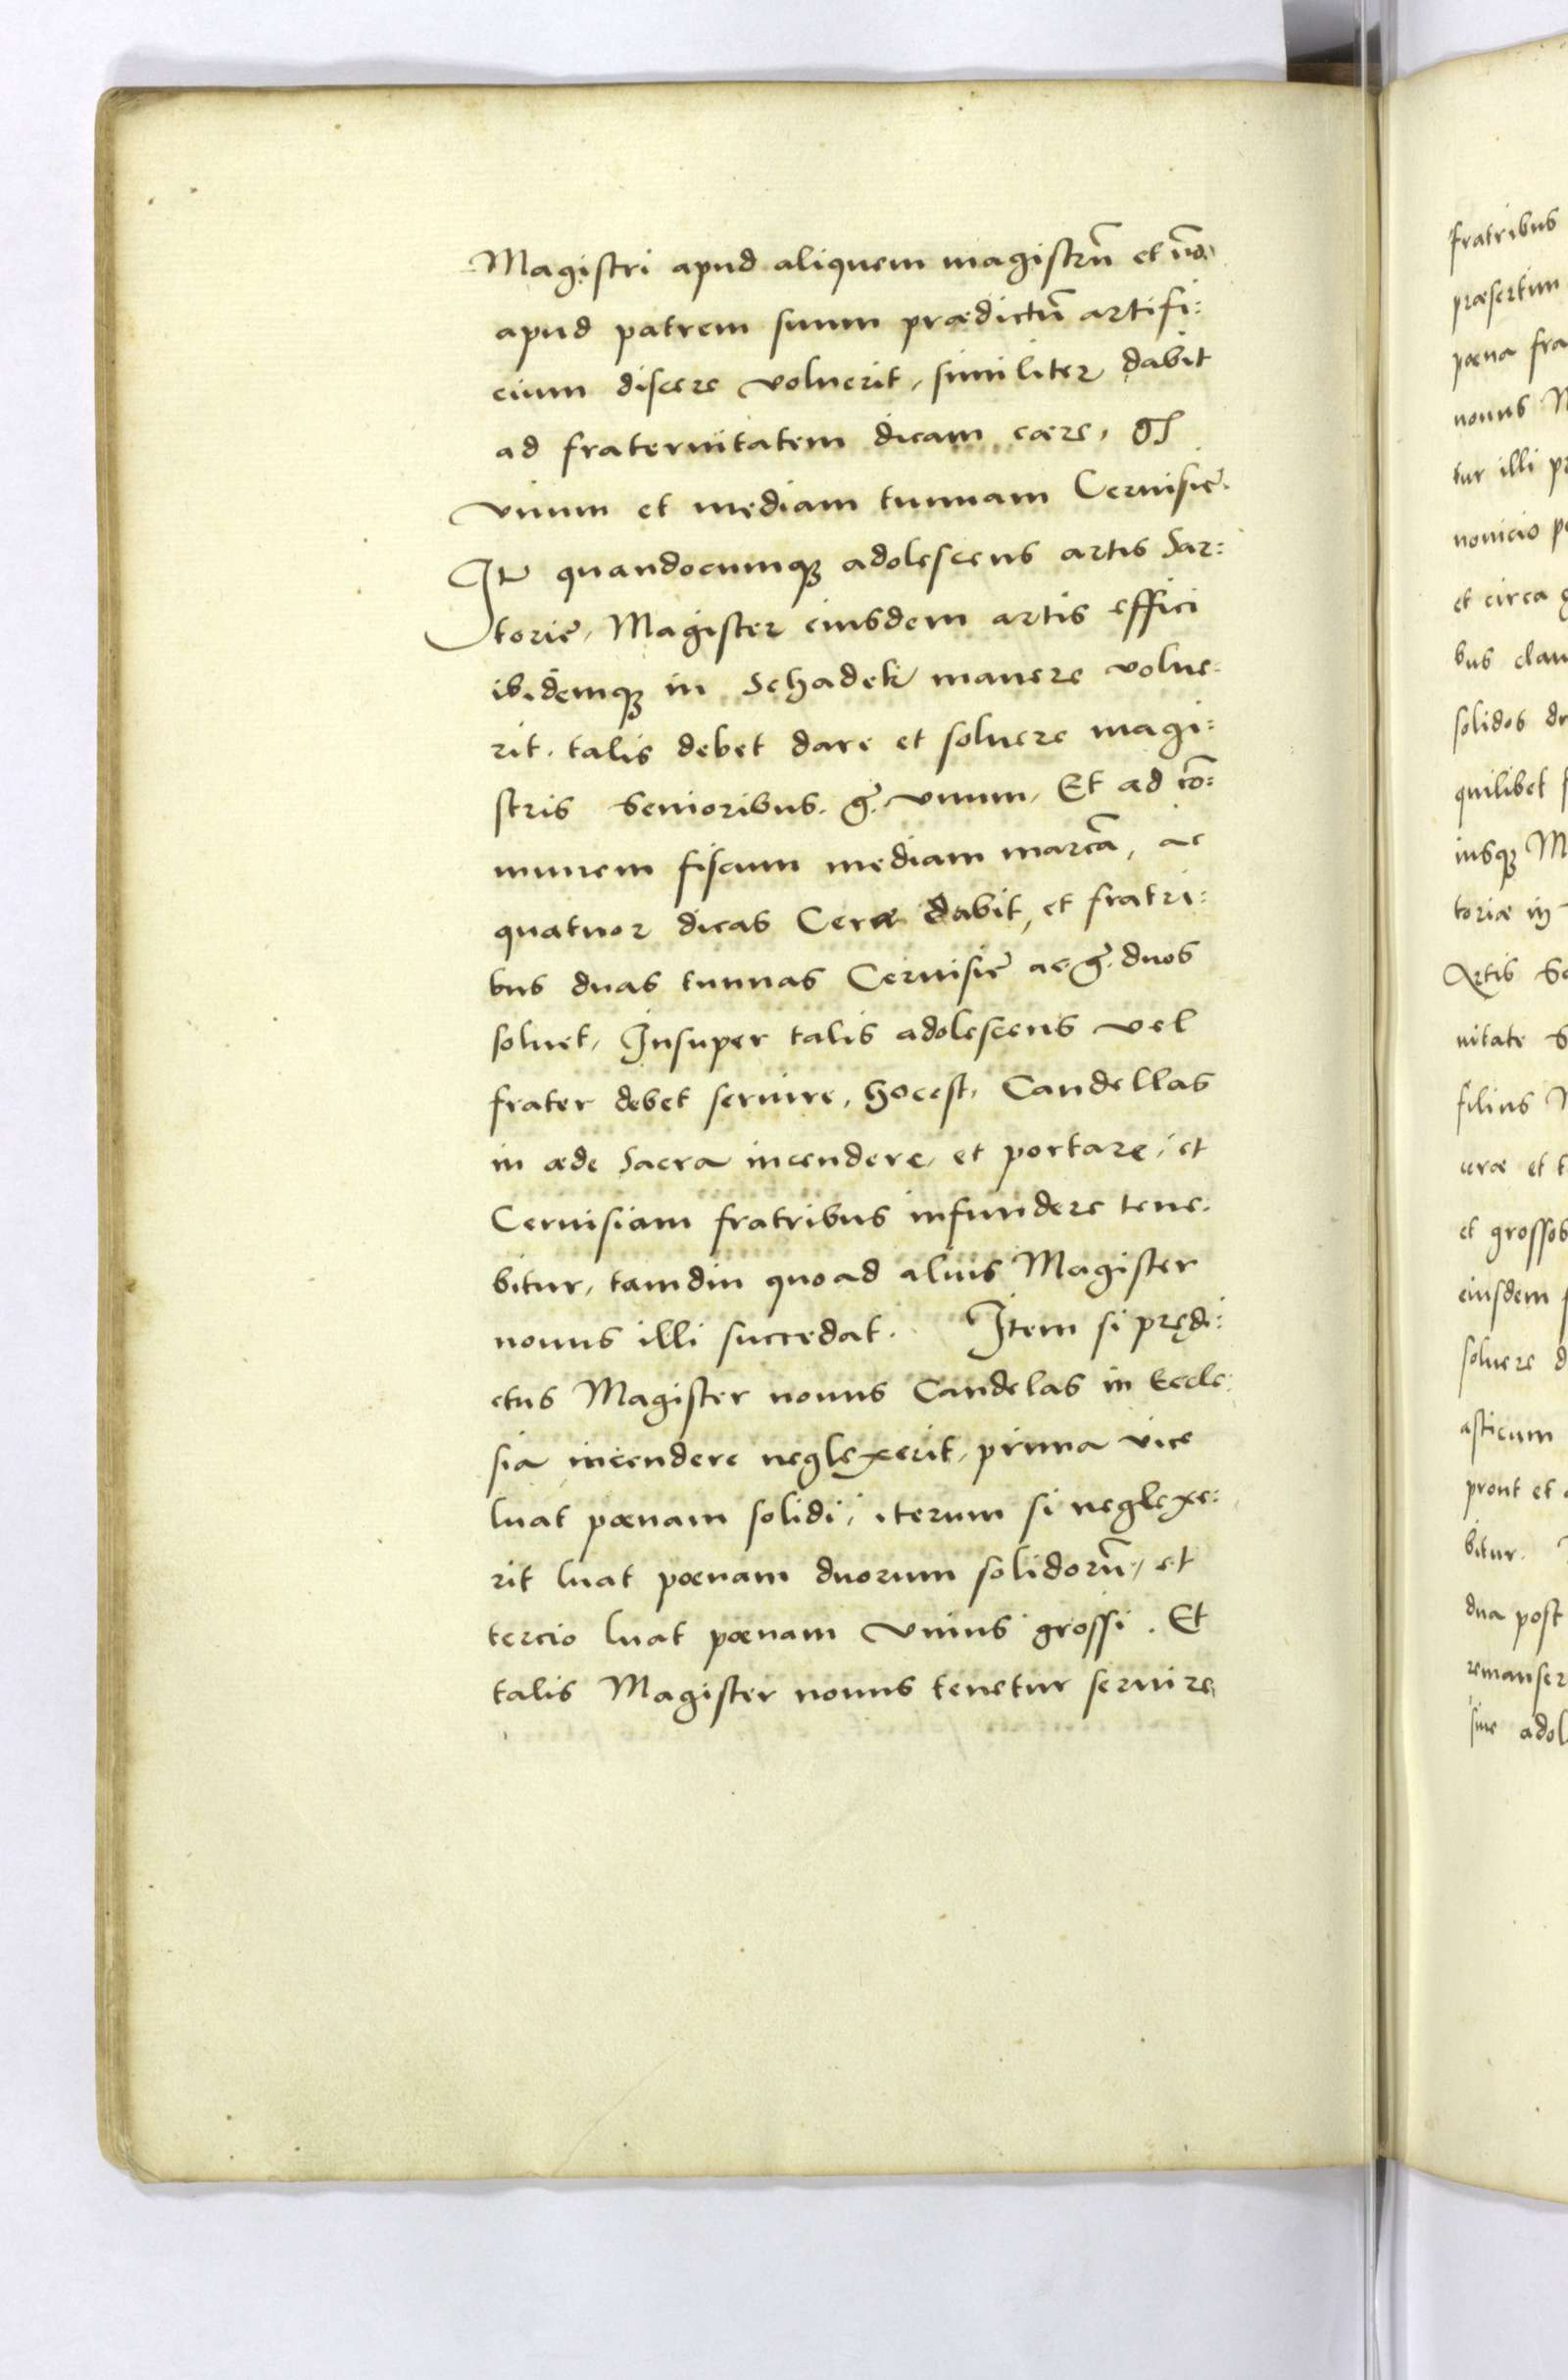 Magistri apud aliquem magistrū et nō
apud patrem suum prædictū artifi:
cium discere voluerit, similiter dabit
ad fraternitatem dicam cære, gſ
vnum et mediam tunnam Ceruisię.
Itē quandocumqꝫ adolescens artis Sar:
torię, Magister eiusdem artis effici
ibidemqꝫ in Schadek manere volue:
rit. talis debet dare et soluere magi:
stris Senioribus. g̃. vnum, Et ad cō:
munem fiscum mediam marcā, ac
quatuor dicas Ceræ dabit, et fratri:
bus duas tunnas Ceruisię ac g̃. duos
soluet, Insuper talis adolescens vel
frater debet seruire, hocest, Candellas
in æde Sacra incendere, et portare, et
Ceruisiam fratribus infundere tene:
bitur, tamdiu quoad alius Magister
nouus illi succedat. Item si prędi:
ctus Magister nouus Candelas in Eccle:
sia incendere neglexerit, prima vice
luat pœnam solidi, iterum si neglexe:
rit luat pœnam duorum solidorū, et
tercio luat pœnam vnius grossi. Et
talis Magister nouus tenetur seruire
fratribus
præsertim
pœna fra
nouus
tur illi
nouicio
et circa
bus
solidos
quilibet
iusqꝫ
toriæ in
Artis
nitate
filius
ceræ et
et grossos
eiusdem
soluere
asticum
prout et
bitur.
dua post
remanser
siue adol